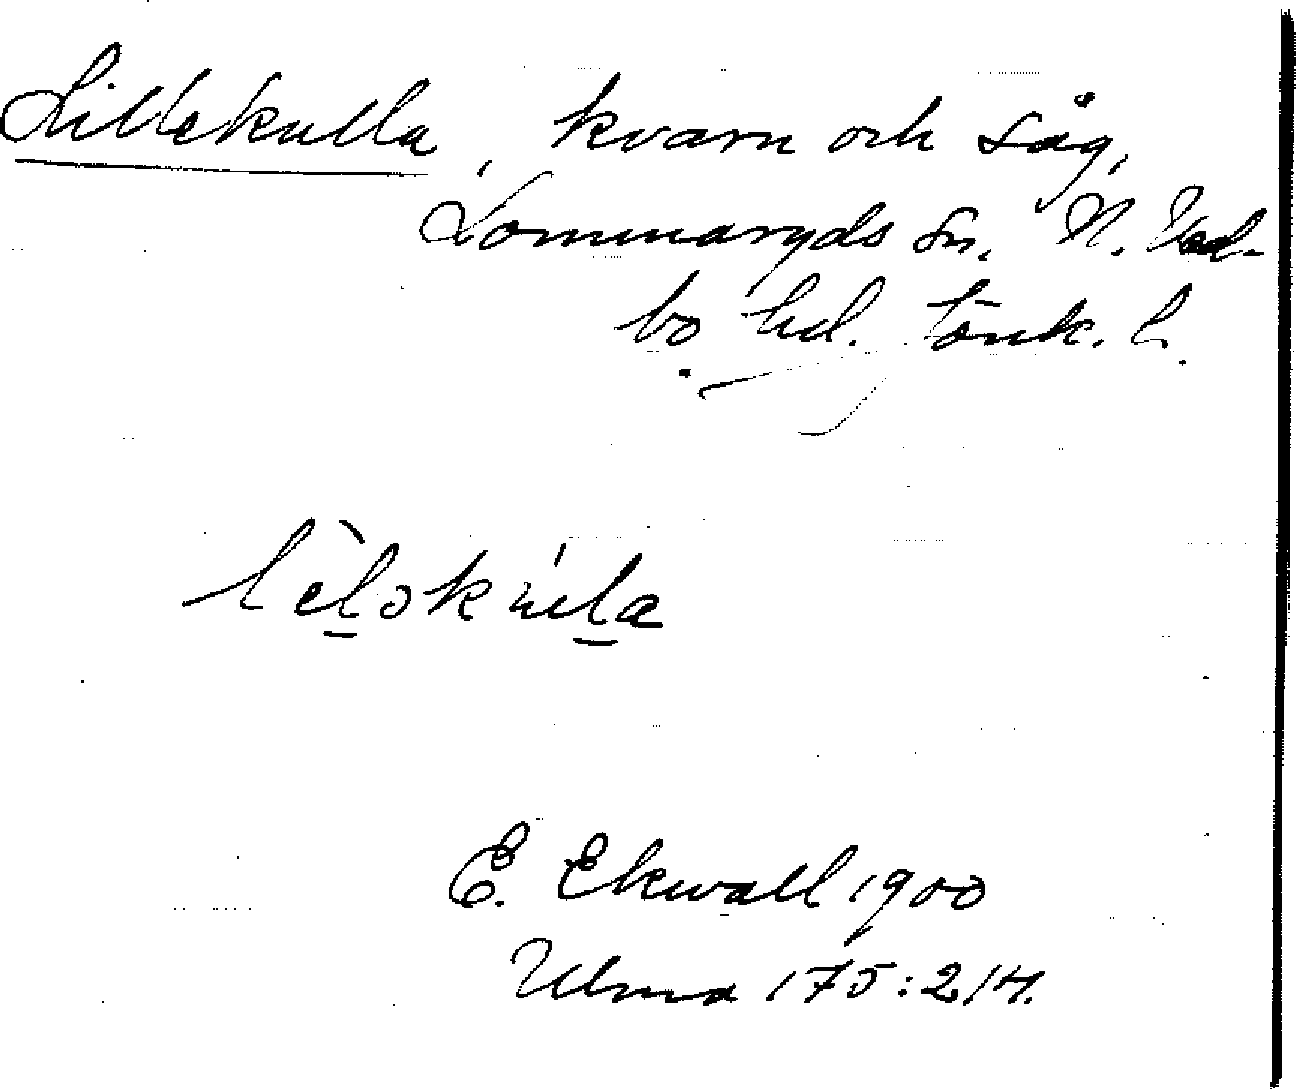 Lillekulla, kvarn och såg,
Lommaryds sn. N. Ved-
bo hd. Jönk. l.
E. Ekwall 1900
Ulma 175:214.